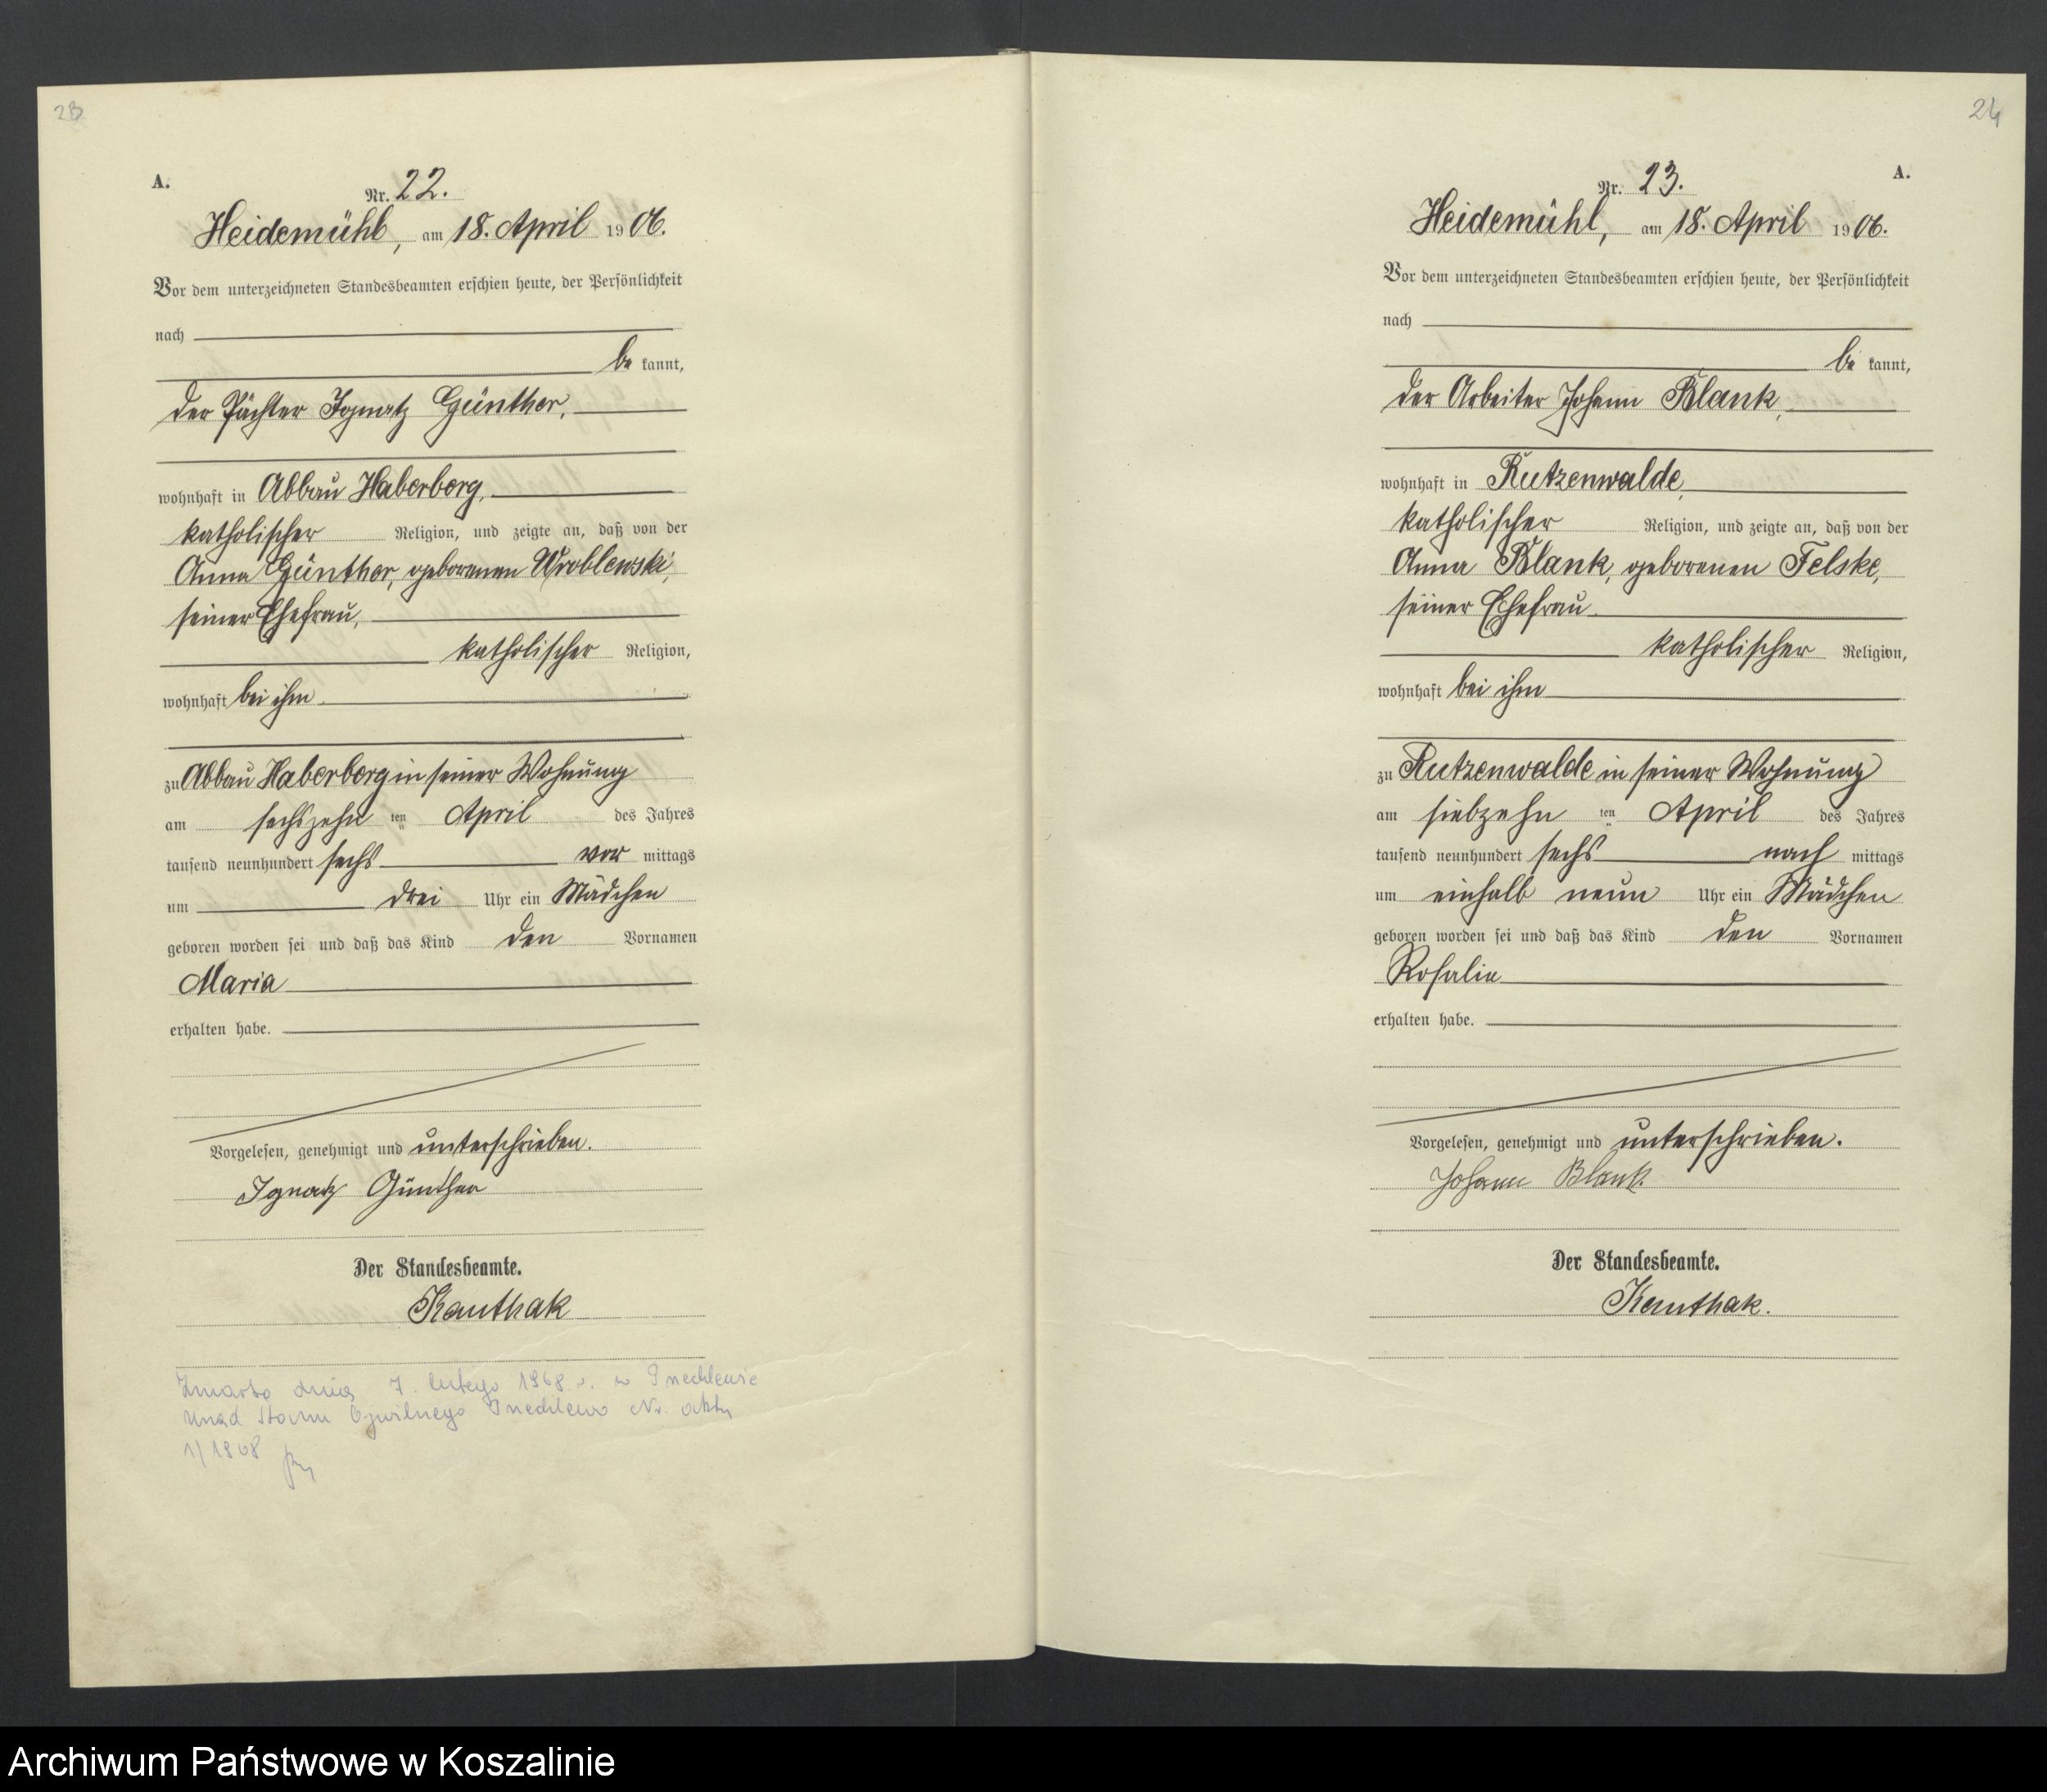 23
A.
Nr. 22.
Heidemühl, am 18. April 1906.
Vor dem unterzeichneten Standesbeamten erschien heute, der Persönlichkeit
nach
be kannt,
der Pächter Ignatz Günther,
wohnhaft in Abbau Haberberg,
katholischer Religion, und zeigte an, daß von der
Anna Günther, geborenen Wroblewski,
seiner Ehefrau,
katholischer Religion,
wohnhaft bei ihm
zu Abbau Haberberg in seiner Wohnung
am sechszehn ten April des Jahres
tausend neunhundert sechs vor mittags
um drei Uhr ein Mädchen
geboren worden sei und daß das Kind den Vornamen
Maria
erhalten habe.
Vorgelesen, genehmigt und unterschrieben.
Ignatz Günther
Der Standesbeamte.
Kauthak
Zmarła dnia 7. lutego 1968 r. w
Urząd Stanu Cywilnego Nr. aktu
24
A.
Nr. 23.
Heidemühl, am 18. April 1906.
Vor dem unterzeichneten Standesbeamten erschien heute, der Persönlichkeit
nach
be kannt,
der Arbeiter Johann Blank,
wohnhaft in Kutzenwalde,
katholischer Religion, und zeigte an, daß von der
Anna Blank, geborenen Felske,
seiner Ehefrau
katholischer Religion,
wohnhaft bei ihm
zu Kutzenwalde in seiner Wohnung
am siebzehn ten April des Jahres
tausend neunhundert sechs nach mittags
um einhalb neun Uhr ein Mädchen
geboren worden sei und daß das Kind den Vornamen
Rosalie
erhalten habe.
Vorgelesen, genehmigt und unterschrieben.
Johann Blank.
Der Standesbeamte.
Kauthak.
Archiwum Państwowe w Koszalinie